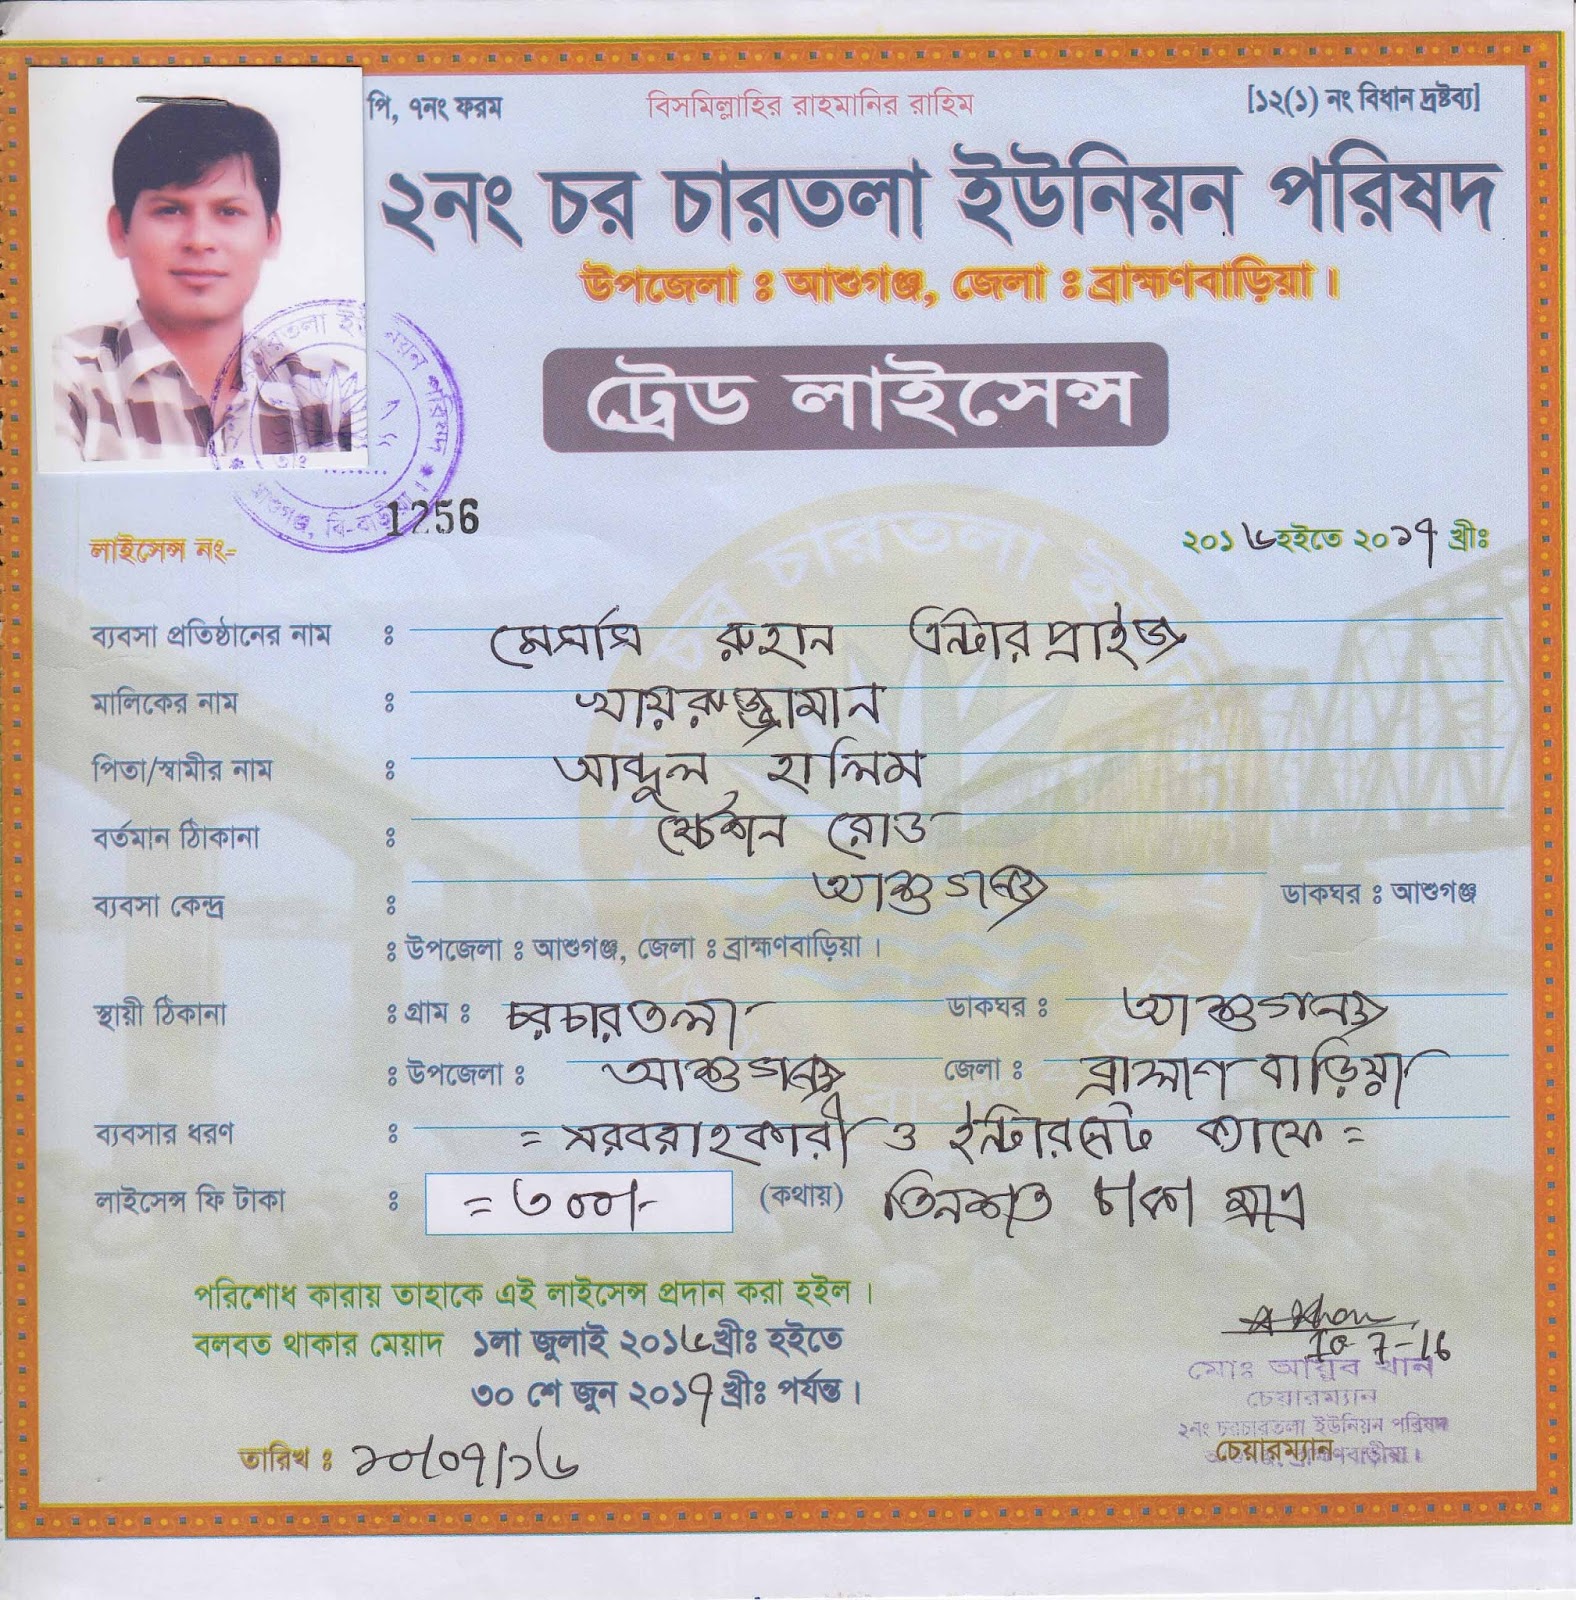 পি, ৭নং ফরম
বিসমিল্লাহির রাহমানির রাহিম
[১২(১) নং বিধান দ্রষ্টব্য]
২নং চর চারতলা ইউনিয়ন পরিষদ
উপজেলা ঃ আশুগঞ্জ, জেলা ঃ ব্রাহ্মণবাড়িয়া।
ট্রেড লাইসেন্স
লাইসেন্স নং- 1256
২০১৬ হইতে ২০১৭ খ্রীঃ
ব্যবসা প্রতিষ্ঠানের নাম ঃ মেসার্স রুহান এন্টারপ্রাইজ
মালিকের নাম ঃ খায়রুজ্জামান
পিতা/স্বামীর নাম ঃ আব্দুল হালিম
বর্তমান ঠিকানা ঃ ষ্টেশন রোড
ব্যবসা কেন্দ্র ঃ আশুগনজ ডাকঘর ঃ আশুগঞ্জ
ঃ উপজেলা ঃ আশুগঞ্জ, জেলা ঃ ব্রাহ্মণবাড়িয়া।
স্থায়ী ঠিকানা ঃ গ্রাম ঃ চরচারতলা ডাকঘর ঃ আশুগনজ
ঃ উপজেলা ঃ আশুগনজ জেলা ঃ ব্রাহ্মণবাড়িয়া
ব্যবসার ধরণ ঃ = সরবরাহকারী ও ইন্টারনেট ক্যাফে =
লাইসেন্স ফি টাকা ঃ = ৩০০/- (কথায়) তিনশত টাকা মাত্র
পরিশোধ কারায় তাহাকে এই লাইসেন্স প্রদান করা হইল।
বলবত থাকার মেয়াদ ১লা জুলাই ২০১৬ খ্রীঃ হইতে
৩০ শে জুন ২০১৭ খ্রীঃ পর্যন্ত।
তারিখ ঃ ১০/০৭/১৬
10-7-16
মোঃ আয়ুব খান
চেয়ারম্যান
২নং চরচারতলা ইউনিয়ন পরিষদ
চেয়ারম্যান